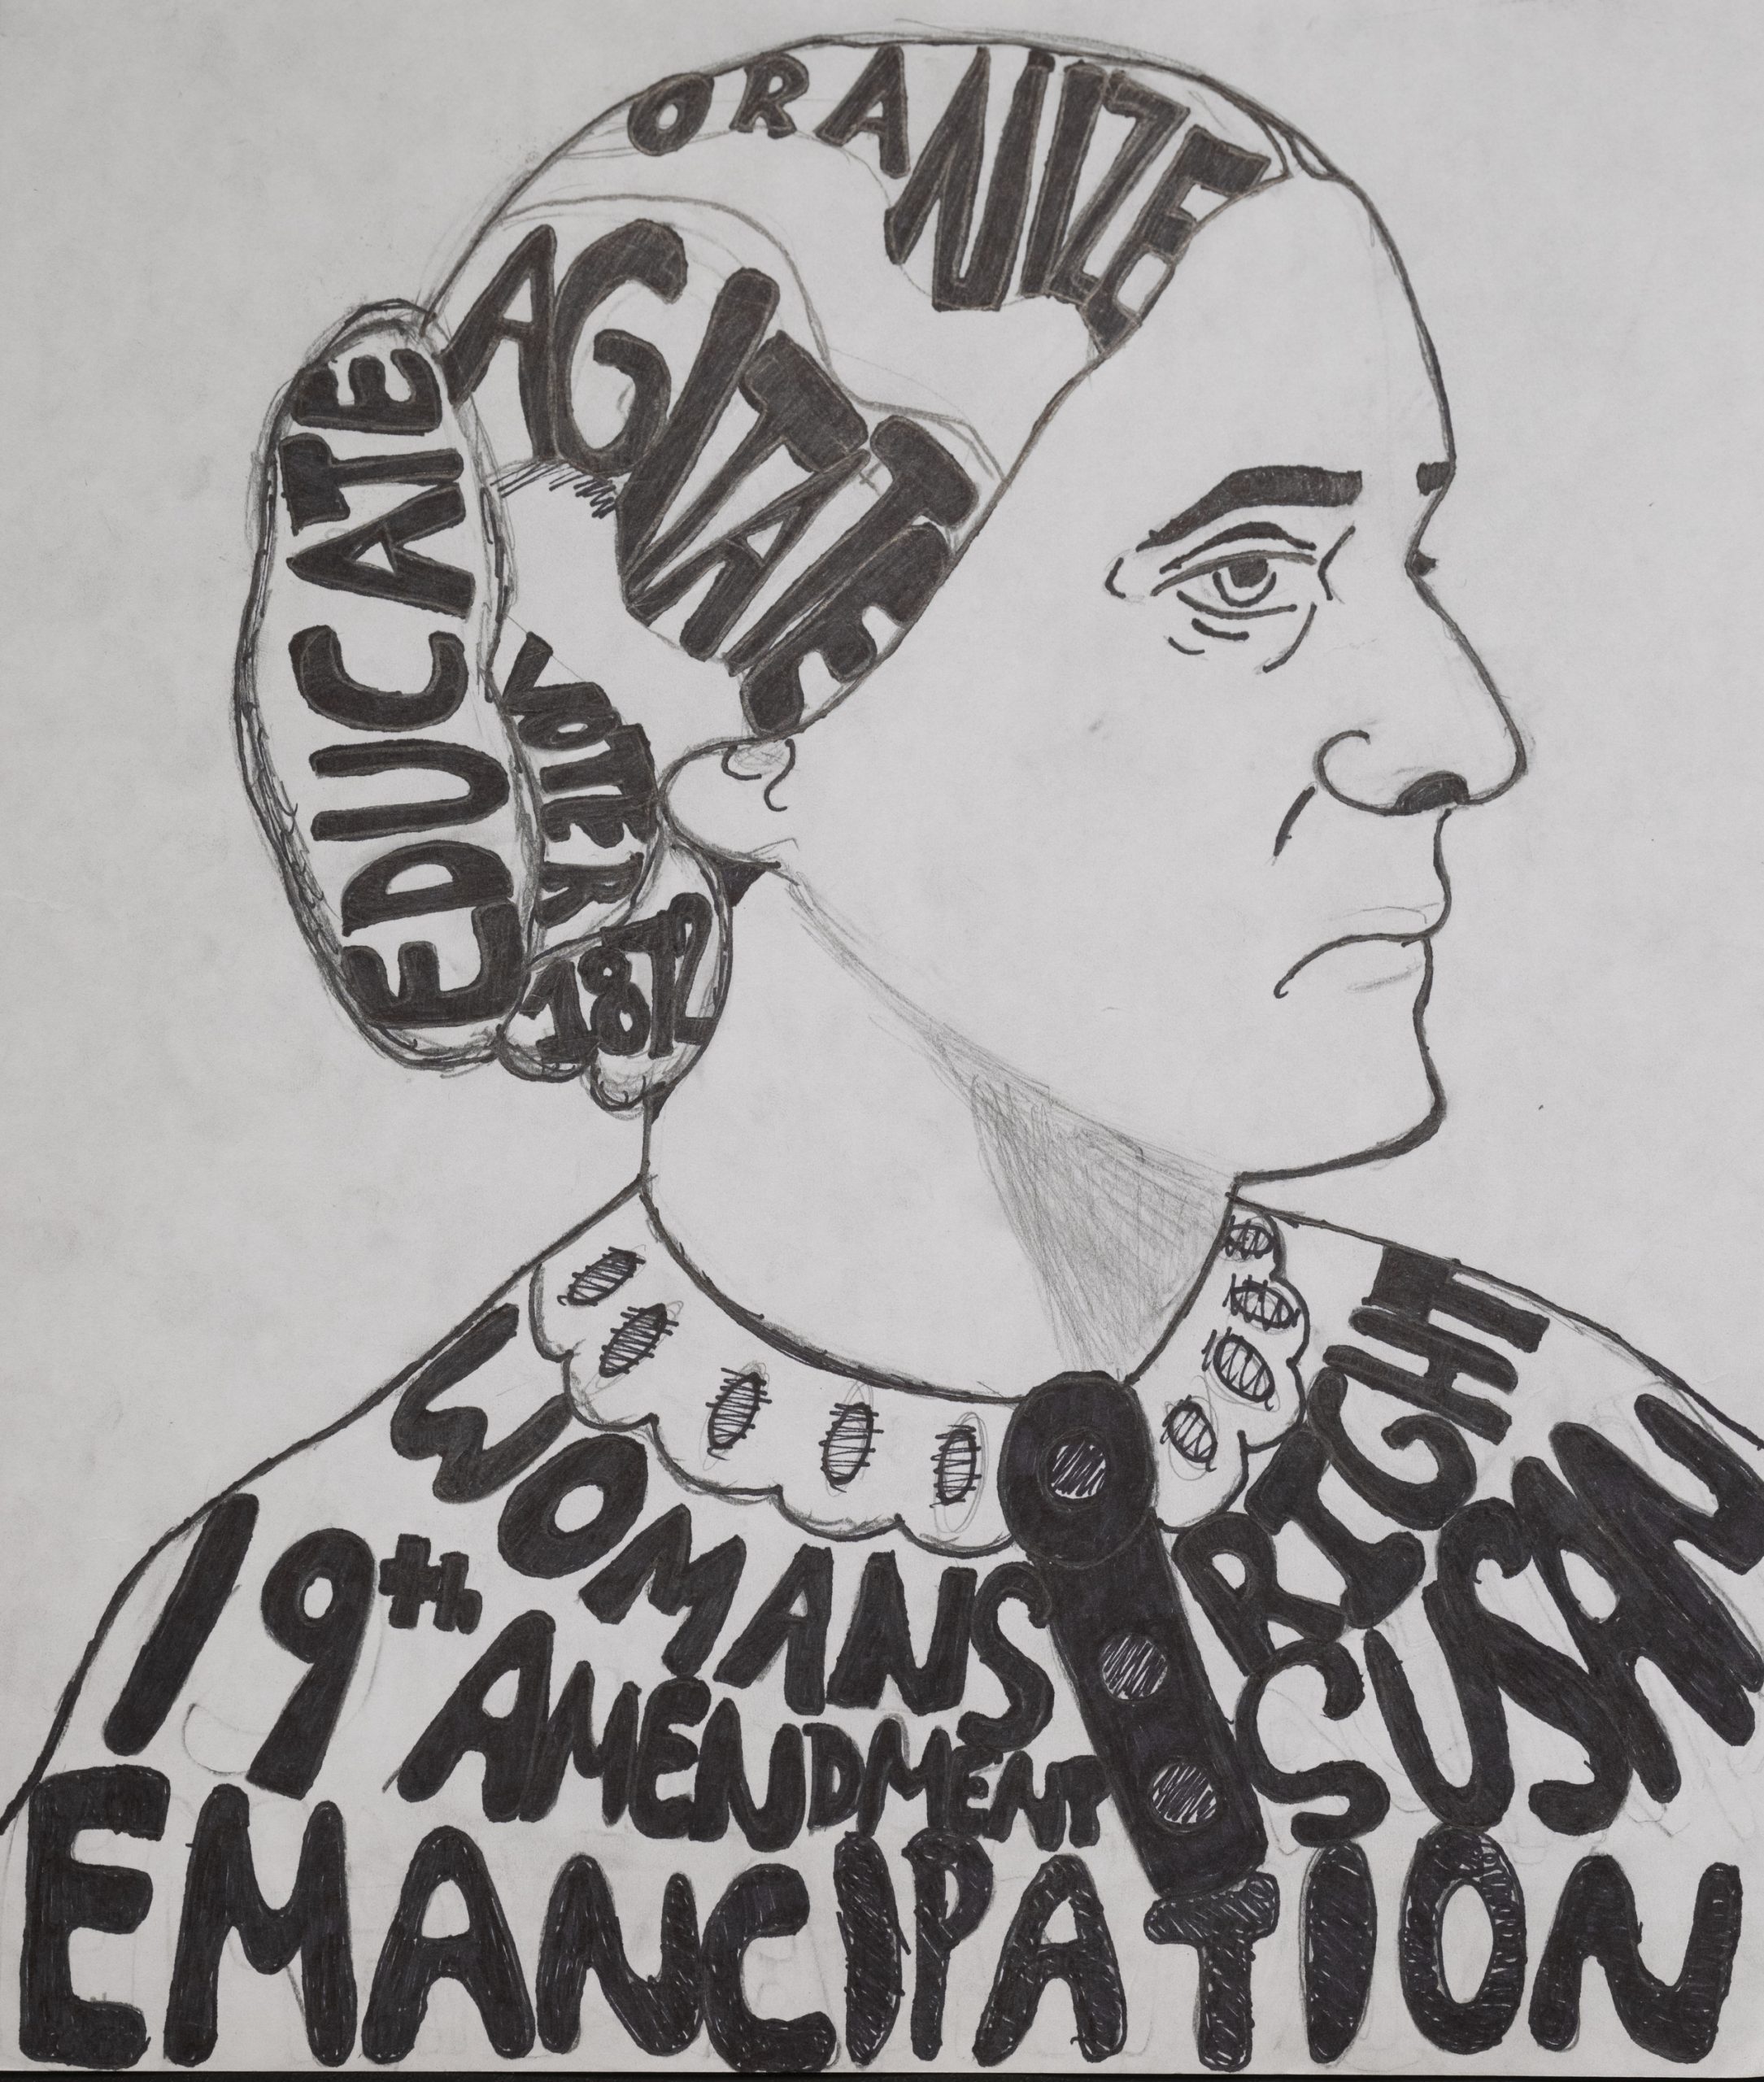 ORANIZE
AGITATE
EDUCATE
VOTER
1872
WOMANS
RIGHT
19th
AMENDMENT
SUSAN
EMANCIPATION